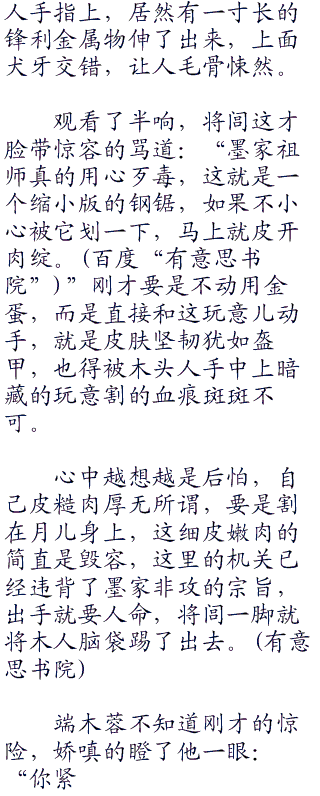 人手指上，居然有一寸长的
锋利金属物伸了出来，上面
犬牙交错，让人毛骨悚然。
观看了半响，将闾这才
脸带惊容的骂道：“墨家祖
师真的用心歹毒，这就是一
个缩小版的钢锯，如果不小
心被它划一下，马上就皮开
肉绽。(百度“有意思书
院”)”刚才要是不动用金
蛋，而是直接和这玩意儿动
手，就是皮肤坚韧犹如盔
甲，也得被木头人手中上暗
藏的玩意割的血痕斑斑不
可。
心中越想越是后怕，自
己皮糙肉厚无所谓，要是割
在月儿身上，这细皮嫩肉的
简直是毁容，这里的机关已
经违背了墨家非攻的宗旨，
出手就要人命，将闾一脚就
将木人脑袋踢了出去。(有意
思书院)
端木蓉不知道刚才的惊
险，娇嗔的瞪了他一眼：
“你紧